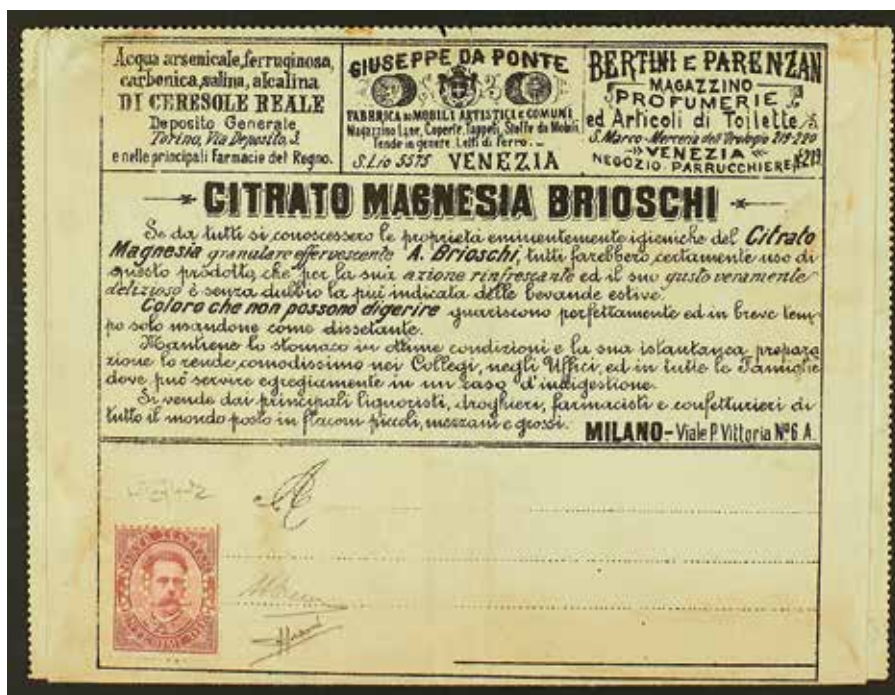 Acqua arsenicale, ferruginosa,
carbonica, salina, alcalina
DI CERESOLE REALE
Deposito Generale
Torino, Via Deposito, 3.
e nelle principali Farmacie del Regno.
GIUSEPPE DA PONTE
FABBRICA DI MOBILI ARTISTICI E COMUNI
Magazzino Lane, Coperte, Tappeti, Stoffe da Mobili
Tende in genere, Letti di Ferro.
S. Lio 5575 VENEZIA
BERTINI E PARENZAN
MAGAZZINO
PROFUMERIE
ed Articoli di Toilette
S. Marco - Merceria dell'Orologio 219-220
VENEZIA
NEGOZIO PARRUCCHIERE № 219
CITRATO MAGNESIA BRIOSCHI
Se da tutti si conoscessero le proprietà eminentemente igieniche del Citrato
Magnesia granulare effervescente A. Brioschi, tutti farebbero certamente uso di
questo prodotto, che per la sua azione rinfrescante ed il suo gusto veramente
delizioso è senza dubbio la più indicata delle bevande estive.
Coloro che non possono digerire guariscono perfettamente ed in breve tem-
po solo usandone come dissetante.
Mantiene lo stomaco in ottime condizioni e la sua istantanea prepara
zione lo rende comodissimo nei Collegi, negli Uffici, ed in tutte le Famiglie
dove può servire egregiamente in un caso d'indigestione.
Si vende dai principali liquoristi, droghieri, farmacisti e confetturieri di
tutto il mondo posto in flaconi piccoli, mezzani e grossi.
MILANO - Viale P. Vittoria Nº 6 A.
A
POSTE ITALIANE